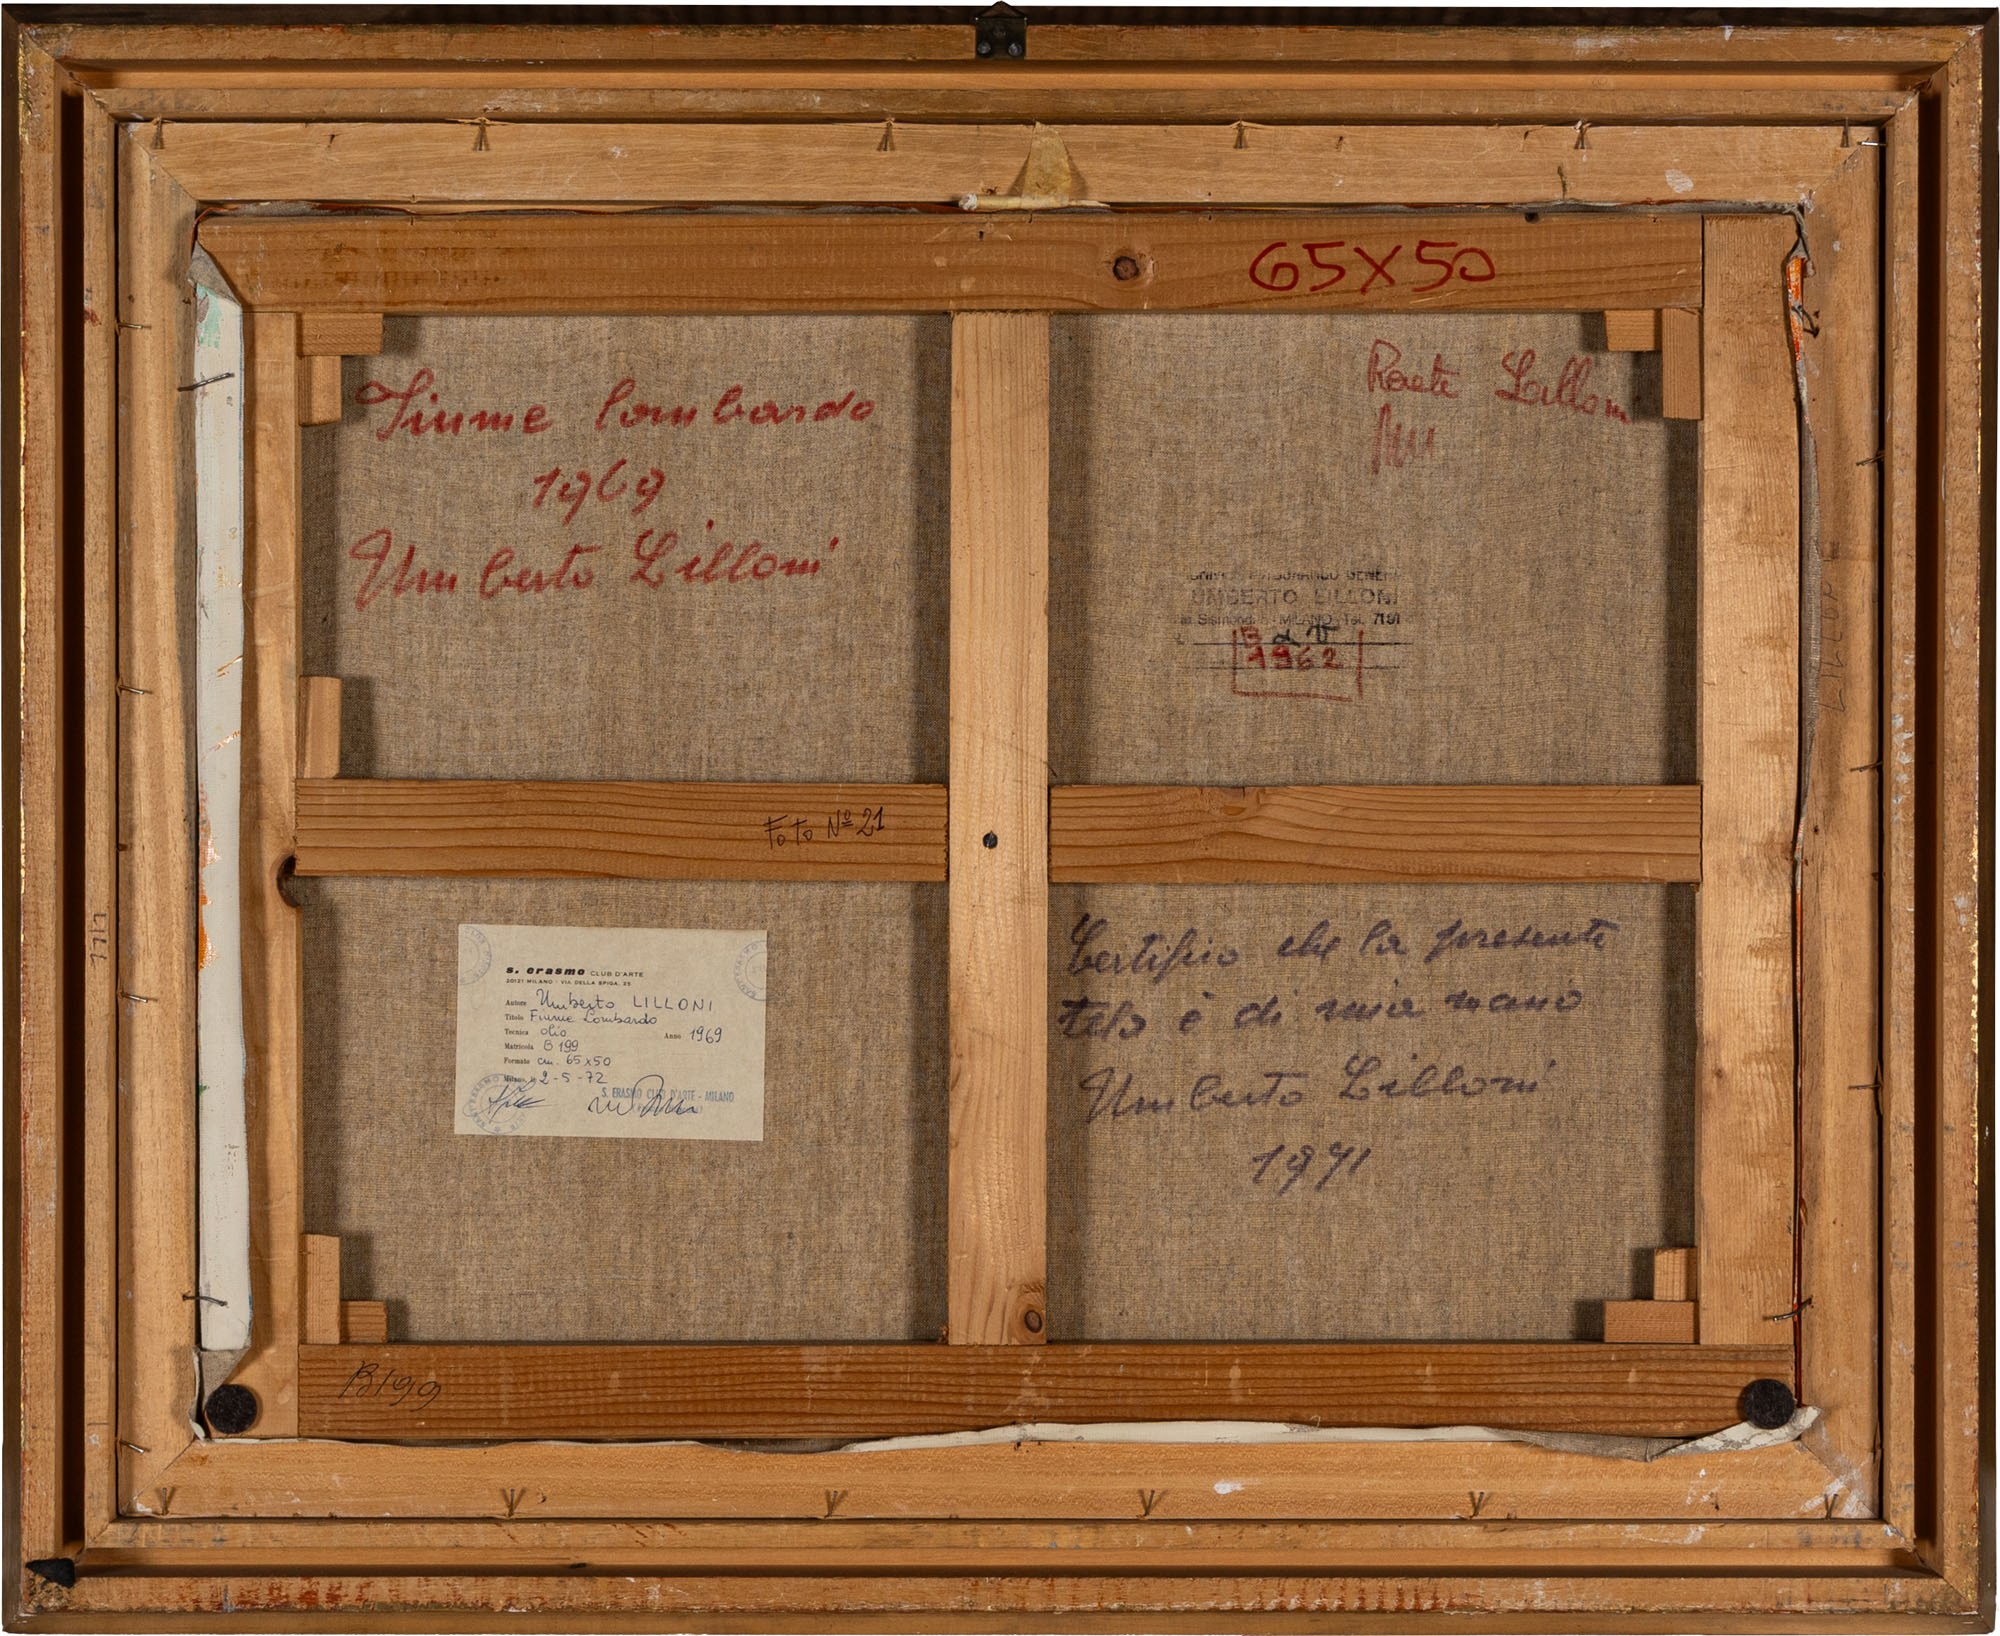 65X50
Fiume lombardo
1969
Umberto Lilloni
Lilloni
UMBERTO LILLONI
MILANO Tel. 7191
1962
Foto Nº 21
s. erasmo CLUB D'ARTE
20121 MILANO - VIA DELLA SPIGA, 25
Autore Umberto LILLONI
Titolo Fiume Lombardo
Tecnica olio Anno 1969
Matricola B 199
Formato cm. 65x50
Milano, li 2-5-72
S. ERASMO CLUB D'ARTE - MILANO
Certifico che la presente
tela è di mia mano
Umberto Lilloni
1971
B199